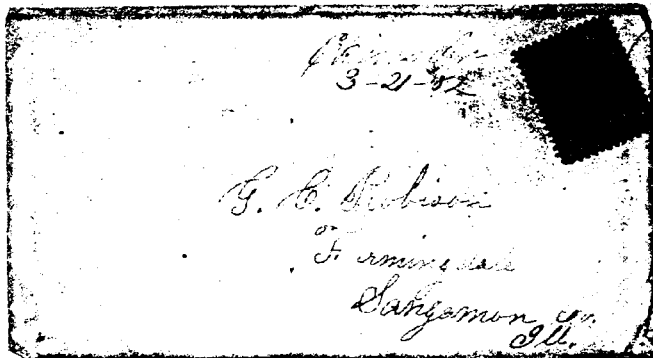 3-21-82
G. C. Robison
Farmingdale
Sangamon Co.
Ill.